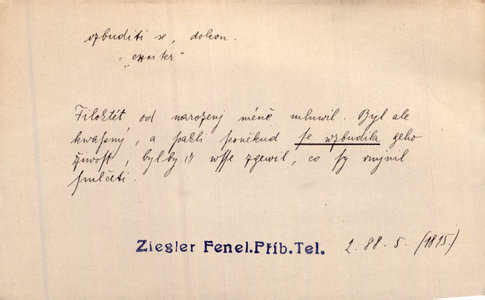 vzbuditi se, dokon.
Filoktét, od narozenj méně mluwil. Byl ale
kwapný, a pakli poněkud se wzbudila geho
žiwost, bylby i wsse zgewil, co sy mjnil
smlčeti.
Ziegler Fenel.Příb.Tel. 2. 88. 5. (1815.)